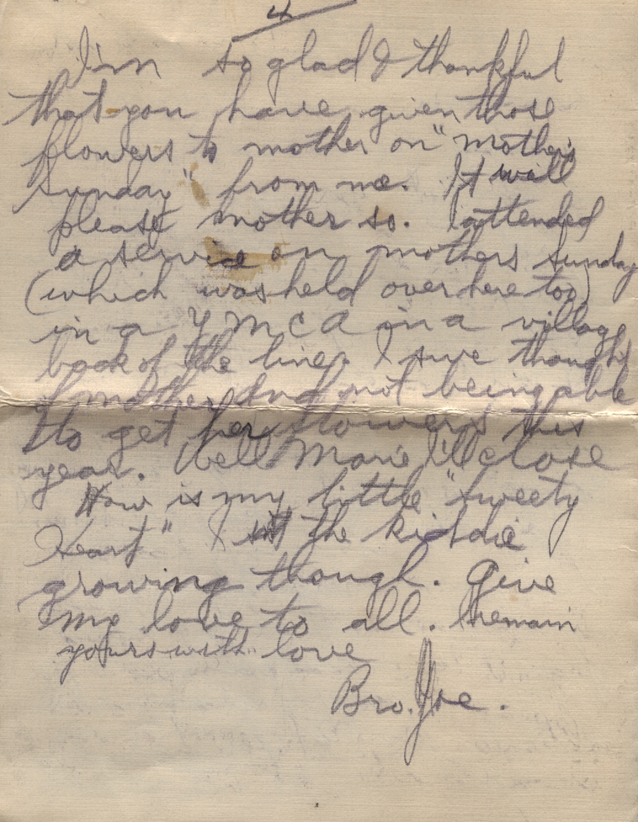 4
I'm so glad & thankful
that you have given those
flowers to mother on "Mothers
Sunday" from me. It will
please mother so. I attended
a service on mothers Sunday
(which was held over here too)
in a YMCA in a village
back of the lines I sure thought
of mother and not being able
to get her flowers this
year. Well Marie I'll close
How is my little "Sweety
Heart" I the kiddie
growing though. Give
my love to all. I remain
yours with love
Bro. Joe.